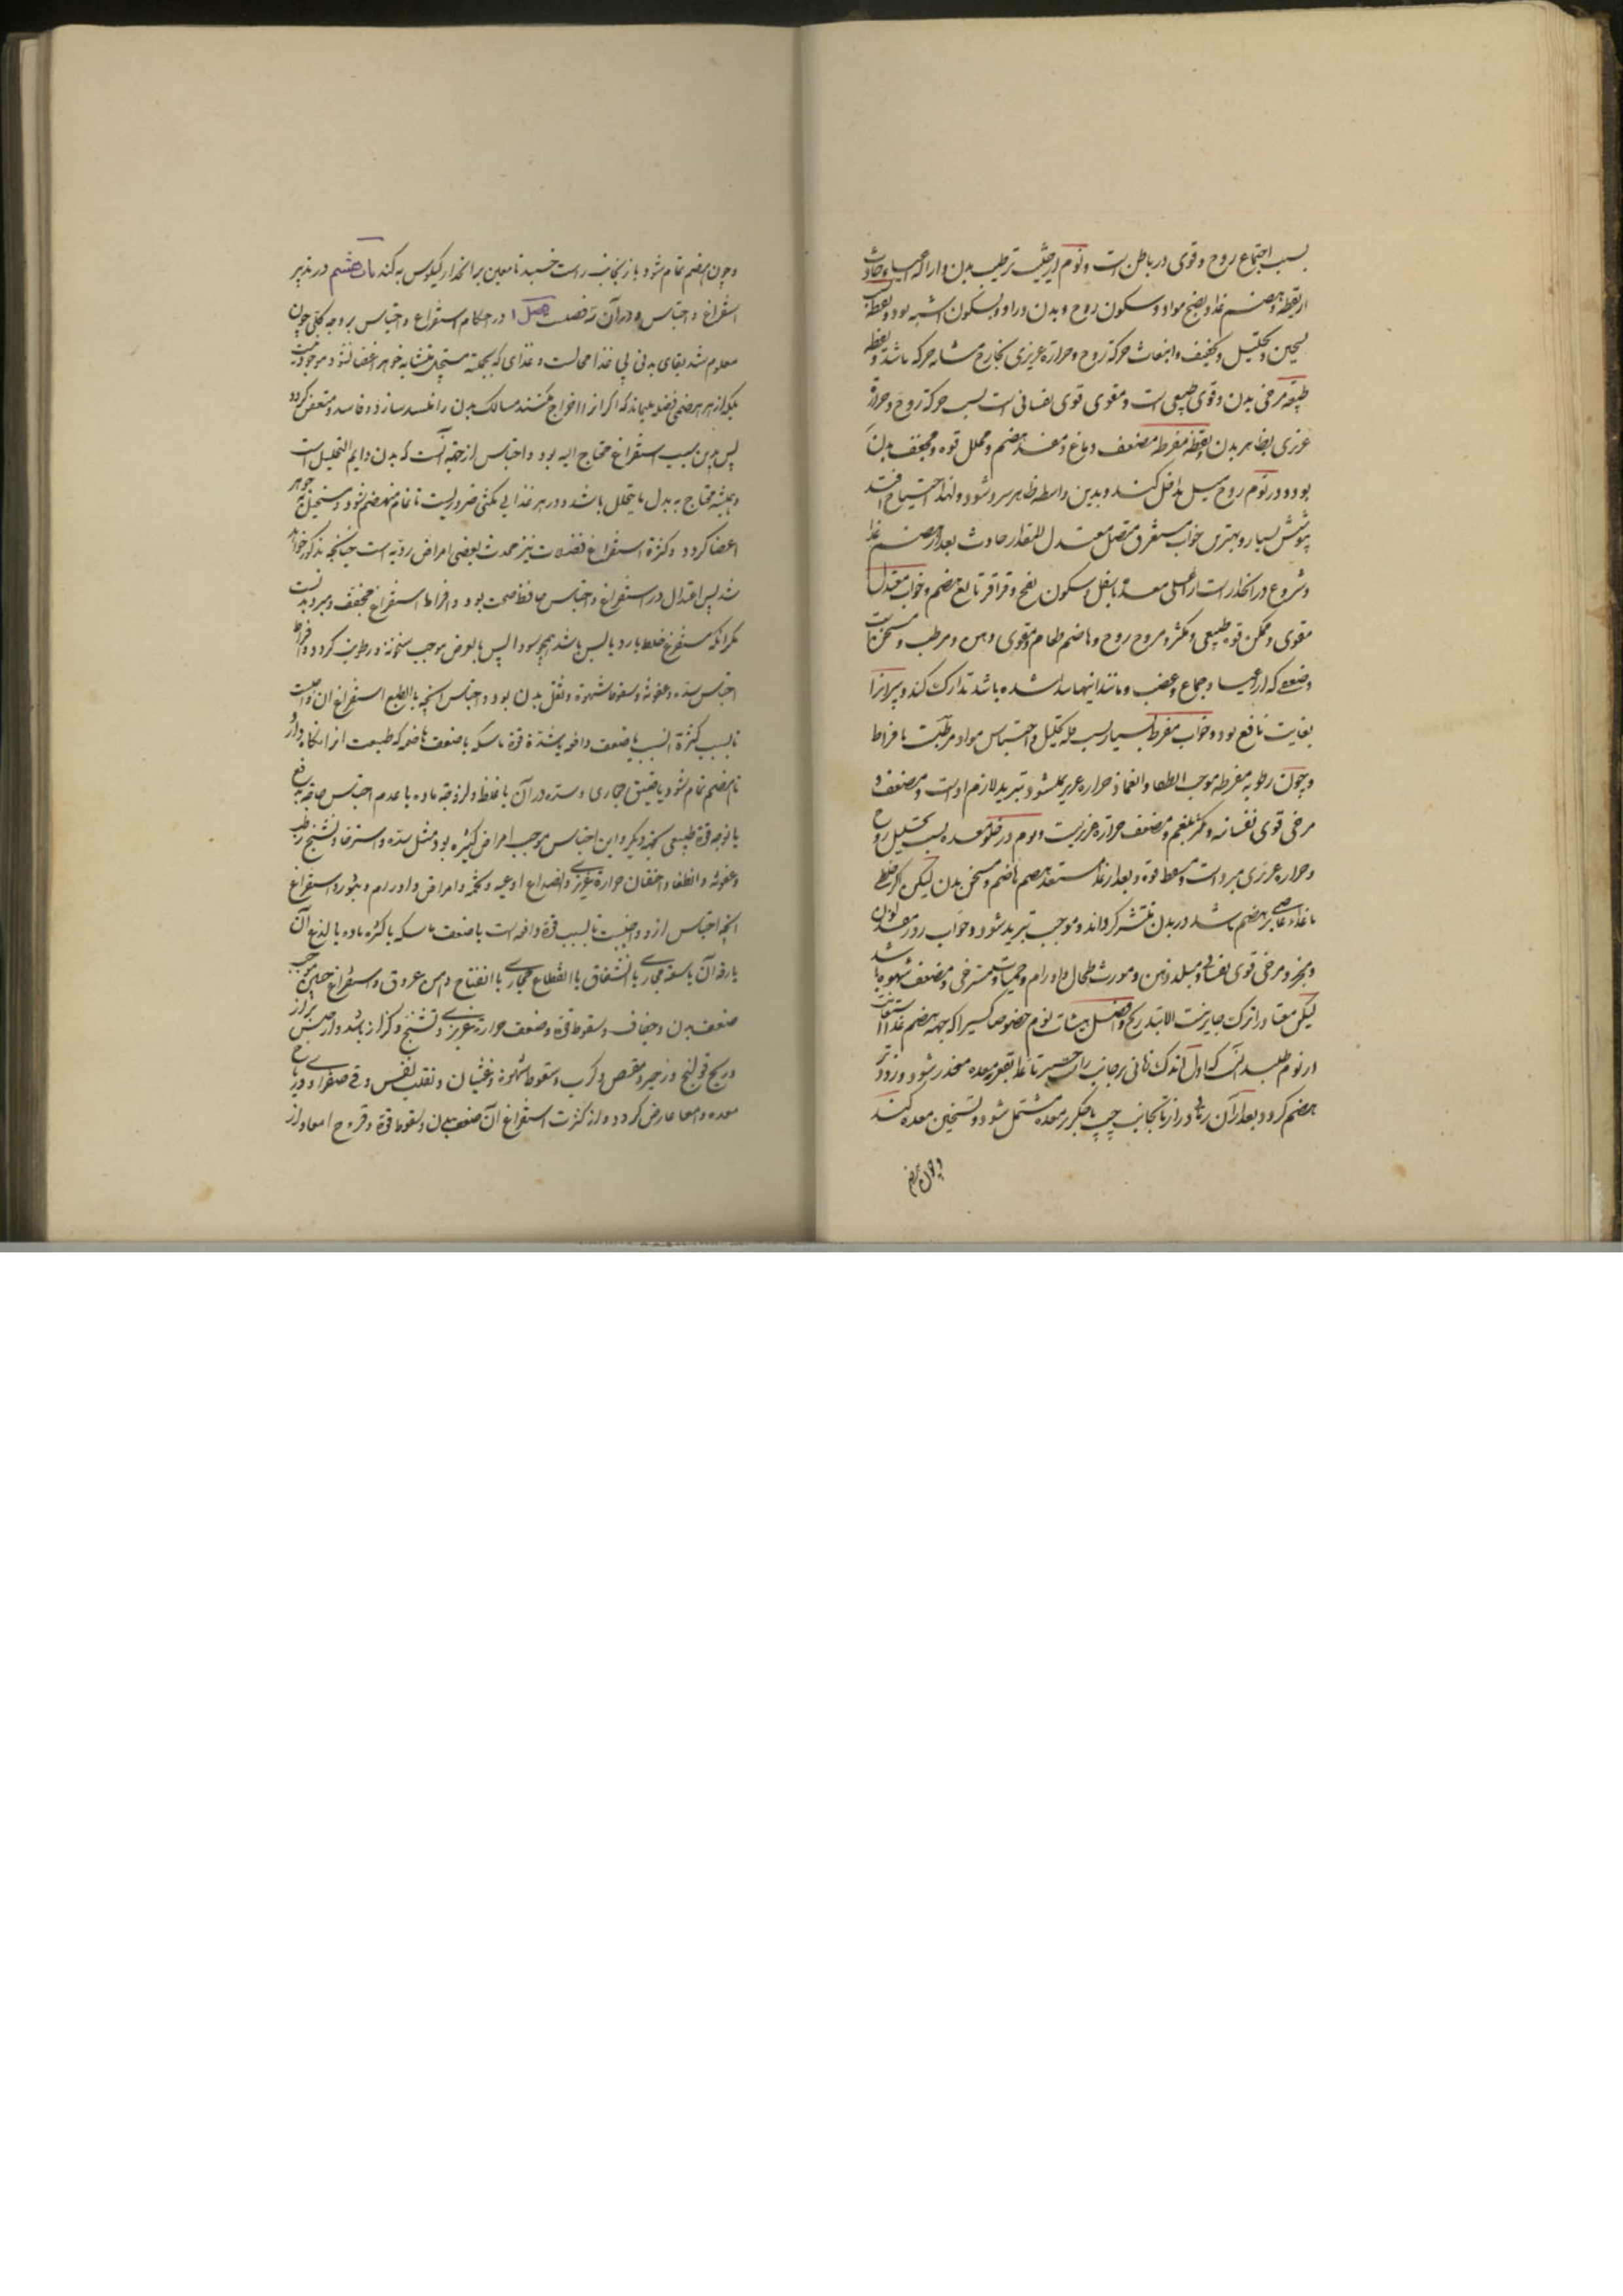 بسبب اجتماع روح و قوی در باطن است و نوم از حیثیت ترطیب بدن و ازاله اعیاء حادث
از یقظه و هضم غذا و نضج مواد و سکون روح و بدن در او و بسکون اشبه بود و یقظه بسبب
تسخین و تحلیل و تجفیف و انبعاث حرکة روح و حرارة غریزی بخارج مشابه حرکه باشد و یقظه
طبیعیه مرخی بدن و قوی طبیعی است و مقوی قوی نفسانی است بسبب حرکة روح و حرارة
غریزی بظاهر بدن و یقظه مفرط مضعف دماغ و مفسد هضم و محلل قوه و مجفف بدن
بود و در نوم روح میل بداخل کند و بدین واسطه ظاهر سرد شود و لهذا احتیاج افتد
بپوشش بسیار و بهترین خواب مستغرق متصل معتدل المقدار حادث بعد از هضم غذا
و شروع در انحدار است از اعلی معده باسفل و سکون نفخ و قراقر تابع هضم و خواب معتدل
مقوی و ممکن قوه طبیعی و مکثر و مروح روح و هاضم طعام و مقوی ذهن و مرطب و مسخن است
و ضعفی که از اعیا و جماع و غضب و مانند اینها پیدا شده باشد تدارک کند و پیران را
بغایت نافع بود و خواب مفرط بسیار بسبب قله تحلیل و احتباس مواد مرطب است بافراط
و چون رطوبه مفرطه موجب انطفا و انغماز حراره غریزی میشود تبرید لازم اوست و مضعف و
مرخی قوی نفسانیه و مکثر بلغم و مضعف حرارة غریزیست و نوم در خلو معده بسبب تحلیل روح
و حراره غریزی مبرد است و مسقط قوه و بعد از غذا مستعد هضم هاضم و مسخن بدن لیکن اگر خلطی
یا غذاء عاصی بر هضم باشد در بدن منتشر گرداند و موجب تبرید شود و خواب روز مفسد لون
و مبخر و مرخی قوی نفسانی و مبلد ذهن و مورث طحال و اورام و حمیات و مسترخی و مضعف شهوه باشد
لیکن معتاد را ترک جایز نیست الا بتدریج و افضل هیئات نوم خصوصا کسی را که جهة هضم غذا استعانت
از نوم طلبد آنست که اول اندک زمانی بر جانب راست خسپد تا غذا بقعر معده منحدر شود و زودتر
هضم گردد بعد از آن زمانی دراز بجانب چپ تا جگر بر معده مشتمل شود و تسخین معده کند
و چون هضم
و چون هضم تمام شود باز بجانب راست خسپد تا معین بر انحدار کیلوس به کند باب هشتم در تدبیر
استفراغ و احتباس و در آن سه فصلست فصل ۱ در احکام استفراغ و احتباس بر وجه کلی چون
معلوم شد بقای بدنی بی غذا محالست و غذای که بجمله مستحیل بمتشابه جوهر اعضا شود موجود نیست
بلکه از هر هضمی فضله میماند که اگر آن را اخراج نکنند مسالک بدن را منسد سازد و فاسد و متعفن گردد
پس بدین سبب استفراغ محتاج الیه بود و احتباس از جهة آنست که بدن دایم التحلیل است
و همیشه محتاج به بدل ما یتحلل باشد و در هر غذایی مکثی ضروریست تا تمام منهضم شود و مستحیل به جوهر
اعضا گردد و کثرة استفراغ فضلات نیز محدث بعضی امراض ردیه است چنانچه مذکور خواهد
شد پس اعتدال در استفراغ و احتباس حافظ صحت بود و افراط استفراغ مجفف و مبرد بدنست
مگر آنکه مستفرغ خلط بارد یابس باشد همچو سودا پس بالعرض موجب سخونة و رطوبت گردد و افراط
احتباس سده و عفونة و سقوط شهوة و ثقل بدن بود و احتباس آنچه بالطبع استفراغ آن واجبست
یا بسبب کثرة آنست یا ضعف دافعه یا شدة قوة ماسکه یا ضعف هاضمه که طبیعت او را نگاه دارد
تا هضم تمام شود یا ضیق مجاری و سده در آن یا غلظ و لزوجة ماده یا عدم احساس حاجه بدفع
یا توجه قوة طبیعی بجهة دیگر و این احتباس موجب امراض کثیره بود مثل سده و استرخا و تشنج رطب
و عفونة و انطفا و احتقان حرارة غریزی و انصداع اوعیه و تخمه و امراض و اورام و بثور و استفراغ
آنچه احتباس ازو واجبست یا بسبب قوة دافعه است یا ضعف ماسکه یا کثرة ماده یا لذع آن
یا رقة آن یا سعة مجاری یا انشقاق یا انقطاع مجاری یا انفتاح دهن عروق و استفراغ چنین موجب
ضعف بدن و جفاف و سقوط قوة و ضعف حرارة غریزی و تشنج و کزاز باشد و از حبس براز
و ریح قولنج و زحیر و مغص و کرب و سقوط شهوة و غثیان و تقلب نفس و قی صفراوی و ریاح
معده و امعا عارض گردد و از کثرت استفراغ آن ضعف بدن و سقوط قوة و قروح امعا و از